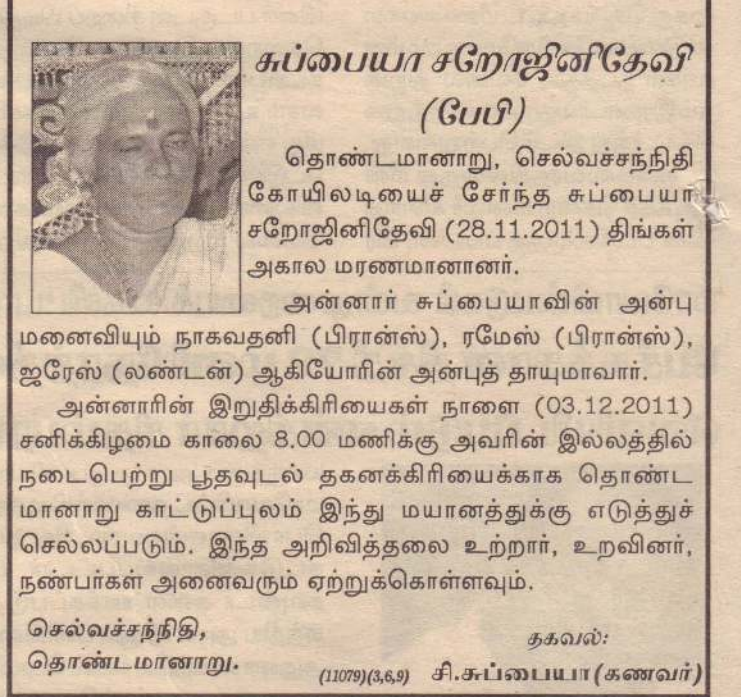 சுப்பையா சறோஜினிதேவி
(பேபி)
தொண்டமானாறு, செல்வச்சந்நிதி
கோயிலடியைச் சேர்ந்த சுப்பையா
சறோஜினிதேவி (28.11.2011) திங்கள்
அகால மரணமானானர்.
அன்னார் சுப்பையாவின் அன்பு
மனைவியும் நாகவதனி (பிரான்ஸ்), ரமேஸ் (பிரான்ஸ்),
ஜரேஸ் (லண்டன்) ஆகியோரின் அன்புத் தாயுமாவார்.
அன்னாரின் இறுதிக்கிரியைகள் நாளை (03.12.2011)
சனிக்கிழமை காலை 8.00 மணிக்கு அவரின் இல்லத்தில்
நடைபெற்று பூதவுடல் தகனக்கிரியைக்காக தொண்ட
மானாறு காட்டுப்புலம் இந்து மயானத்துக்கு எடுத்துச்
செல்லப்படும். இந்த அறிவித்தலை உற்றார், உறவினர்,
நண்பர்கள் அனைவரும் ஏற்றுக்கொள்ளவும்.
செல்வச்சந்நிதி,
தொண்டமானாறு.
தகவல்:
(11079)(3,6,9) சி.சுப்பையா(கணவர்)